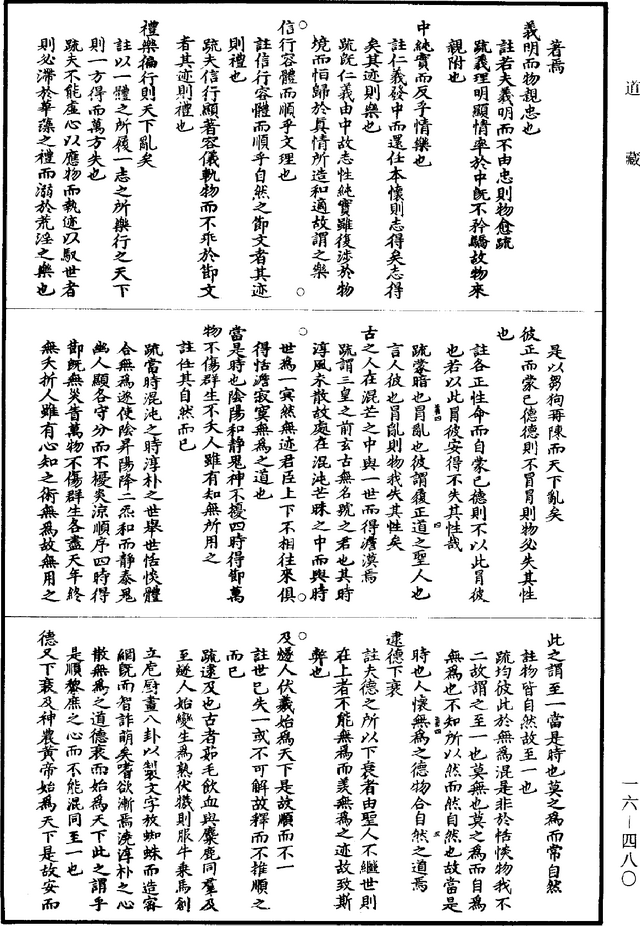 道藏
著焉
義明而物親忠也
註若夫義明而不由忠則物愈疏
疏義理明顯情率於中既不矜驕故物來
親附也
中純實而反乎情樂也
註仁義發中而還任本懷則志得矣志得
矣其迹則樂也
疏既仁義由中故志性純實雖復涉於物
境而恒歸於真情所造和適故謂之樂
信行容體而順乎文禮也
註信行容體而順乎自然之節文者其迹
則禮也
疏夫信行顯著容儀軌物而不乖於節文
者其迹則禮也
禮樂徧行則天下亂矣
註以一體之所履一志之所樂行之天下
則一方得而萬方失也
疏夫不能虛心以應物而執迹以馭世者
則必滯於華藻之禮而溺於荒淫之樂也
是以芻狗再陳而天下亂矣
彼正而蒙己德德則不冒冒則物必失其性
也
註各正性命而自蒙己德則不以此冒彼
也若以此冒彼安得不失其性哉
疏蒙暗也冒亂也彼謂履正道之聖人也
言人彼也冒亂則物我失其性矣
古之人在混芒之中與一世而得澹漠焉
疏謂三皇之前玄古無名號之君也其時
淳風未散故處在混沌芒昧之中而與時
世為一冥然無迹君臣上下不相往來俱
得恬澹寂寞無為之道也
當是時也陰陽和靜鬼神不擾四時得節萬
物不傷群生不夭人雖有知無所用之
註任其自然而已
疏當時混沌之時淳朴之世舉世恬惔體
合無為遂使陰昇陽降二炁和而靜泰鬼
幽人顯各守分而不擾炎涼順序四時得
節既無災眚萬物不傷群生各盡天年終
無夭折人雖有心知之術無為故無用之
此之謂至一當是時也莫之為而常自然
註物皆自然故至一也
疏均彼此於無為混是非於恬惔物我不
二故謂之至一也莫無也莫之為而自為
無為也不知所以然而然自然也故當是
時也人懷無為之德物合自然之道焉
逮德下衰
註夫德之所以下衰者由聖人不繼世則
在上者不能無為而羨無為之迹故致斯
弊也
及燧人伏羲始為天下是故順而不一
註世已失一或不可解故釋而不推順之
而已
疏逮及也古者茹毛飲血與麋鹿同羣及
至燧人始變生為熟伏犧則服牛乘馬創
立庖廚畫八卦以製文字放蜘蛛而造密
網既而智詐萌矣嗜欲漸焉澆淳朴之心
散無為之道德衰而始為天下此之謂乎
是順黎庶之心而不能混同至一也
德又下衰及神農黃帝始為天下是故安而
一六—四八〇